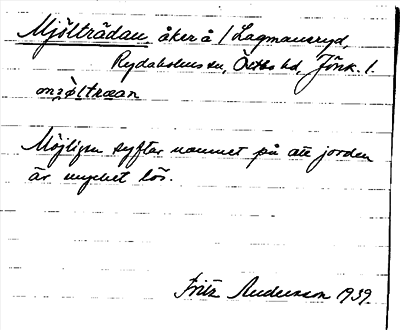 Mjölträdan åker å 1 Lagmansryd,
Rydaholms sn, Östbo hd, Jönk. l.
mjøltræan
Möjligen syftar namnet på att jorden
är mycket lös.
Fritz Andersson 1939.